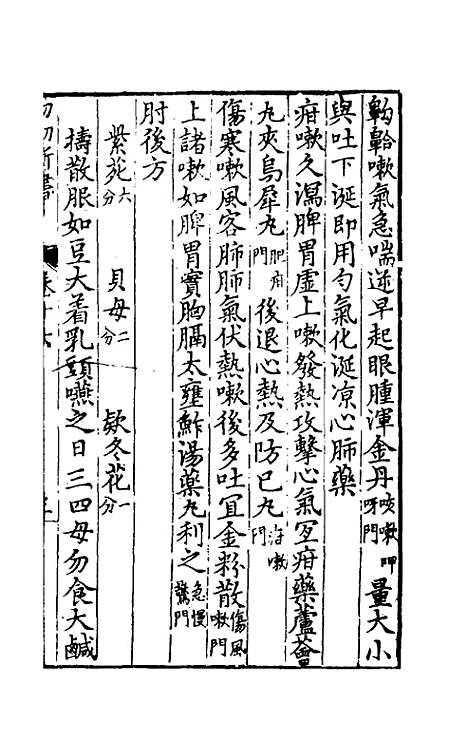 齁䶎嗽氣急喘逆早起眼腫渾金丹咳嗽呷呀門量大小
與吐下涎即用勻氣化涎凉心肺藥
疳嗽久瀉脾胃虛上嗽發熱攻擊心氣宜疳藥蘆薈
丸夾烏犀丸肥疳門後退心熱及防已丸疳嗽門
傷寒嗽風客肺肺氣伏熱嗽後多吐宜金粉散傷風嗽門
上諸嗽如脾胃實胸膈太壅鮓湯藥丸利之急慢驚門
肘後方
紫菀六分 貝母二分 欵冬花一分
擣散服如豆大着乳頭嚥之日三四母勿食大鹹
幼幼新書 卷十六